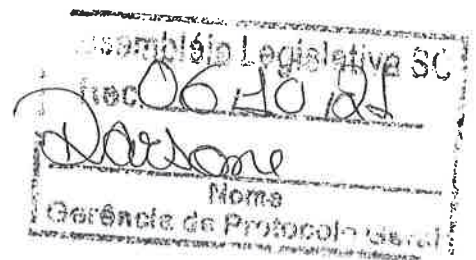 Assembléia Legislativa SC
Rec 06 10 21
Nome
Gerência de Protocolo Geral